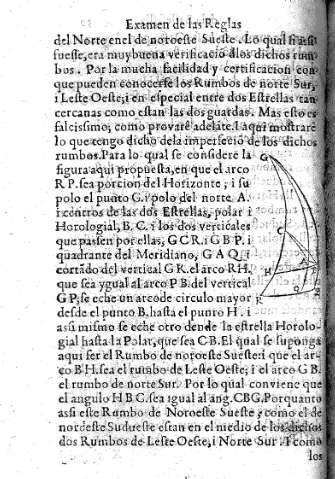 Examen de las Reglas
del Norte enel de noroeste Sueste. Lo qual si assi
fuesse, era muy buena verificació dlos dichos rum
bos. Por la mucha facilidad y certificacion con
que pueden conocerse los Rumbos de norte Sur,
i Leste Oeste; i en especial entre dos Estrellas tan
cercanas como estan las dos guardas. Mas esto es
falcissimo; como provaré adelāte. I aqui mostraré
lo que tengo dicho dela imperfeció de los dichos
rumbos. Para lo qual se considere la
figura aqui propuesta, en que el arco
R P. sea porcion del Horizonte, i su
polo el punto G. i polo del norte A.
i centros de las dos Estrellas, polar i
Horologial, B. C. i los dos verticales
que passen por ellas, G C R. i G B P. i
quadrante del Meridiano, G A Q. i
cortado del vertical G K. el arco RH,
que sea ygual al arco P B. del vertical
G P, se eche un arco de circulo mayor
desde el punto B. hasta el punto H. i
assi mismo se eche otro dende la estrella Horolo-
gial hasta la Polar, que sea C B. El qual se suponga
aqui ser el Rumbo de noroeste Sueste: i que el ar-
co B H. sea el rumbo de Leste Oeste; i el arco G B.
el rumbo de norte Sur. Por lo qual conviene que
el angulo H B C. sea igual al ang. C B G. Porquanto
assi este Rumbo de Noroeste Sueste, como el de
nordeste Sudueste estan en el medio de los dichos
dos Rumbos de Leste Oeste, i Norte Sur. I como
los
G
A
C
B
H
R
Q
P